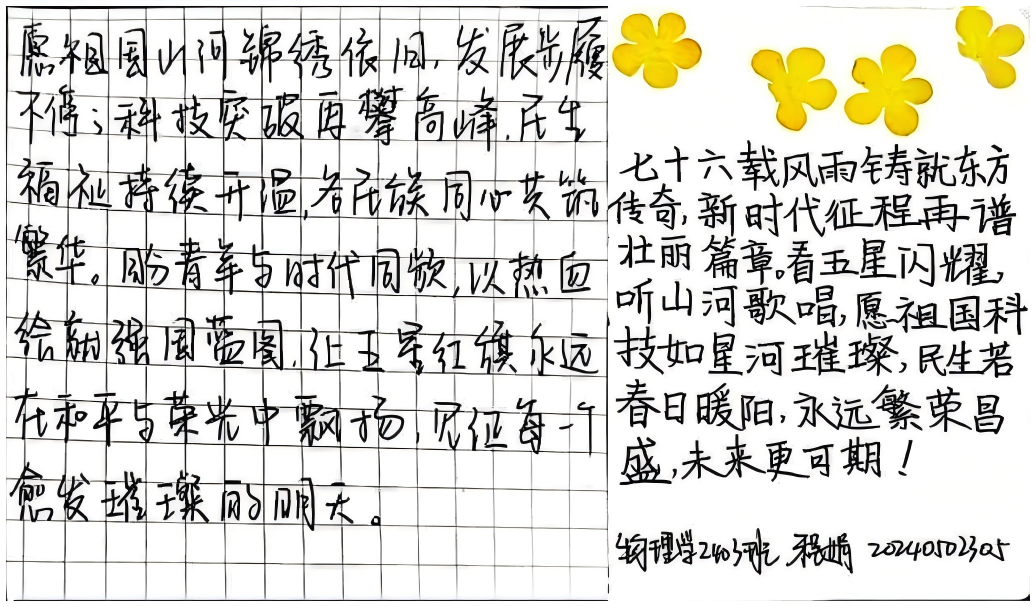 愿祖国山河锦绣依旧,发展步履
不停;科技突破再攀高峰,民生
福祉持续升温,各民族同心共筑
繁华。盼青年与时代同频,以热血
绘就强国蓝图,让五星红旗永远
在和平与荣光中飘扬,见证每一个
愈发璀璨的明天。
七十六载风雨铸就东方
传奇,新时代征程再谱
壮丽篇章。看五星闪耀,
听山河歌唱,愿祖国科
技如星河璀璨,民生若
春日暖阳,永远繁荣昌
盛,未来更可期!
物理学2403班 程娟 20240502305